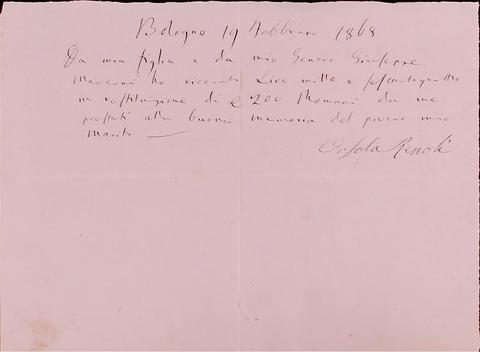 Bologna 19 Febbraro 1868
Da mia figlia e da mio Genero Giuseppe
Marconi ho ricevuti Lire mille e sessantaquattro
in restituzione di £ 200 Romani da me
prestati alla buona memoria del povero mio
Marito
Orsola Renoli